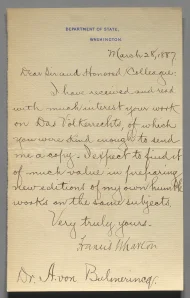 DEPARTMENT OF STATE,
WASHINGTON.
March 28, 1887
Dear Sir and Honored Colleague:
I have received and read
with much interest your work
on Das Völkerrecht, of which
you were kind enough to send
me a copy. I expect to find it
of much value in preparing
new editions of my own humble
works on the same subjects.
Very truly yours.
Francis Wharton
Dr. A. von Bulmerincq.